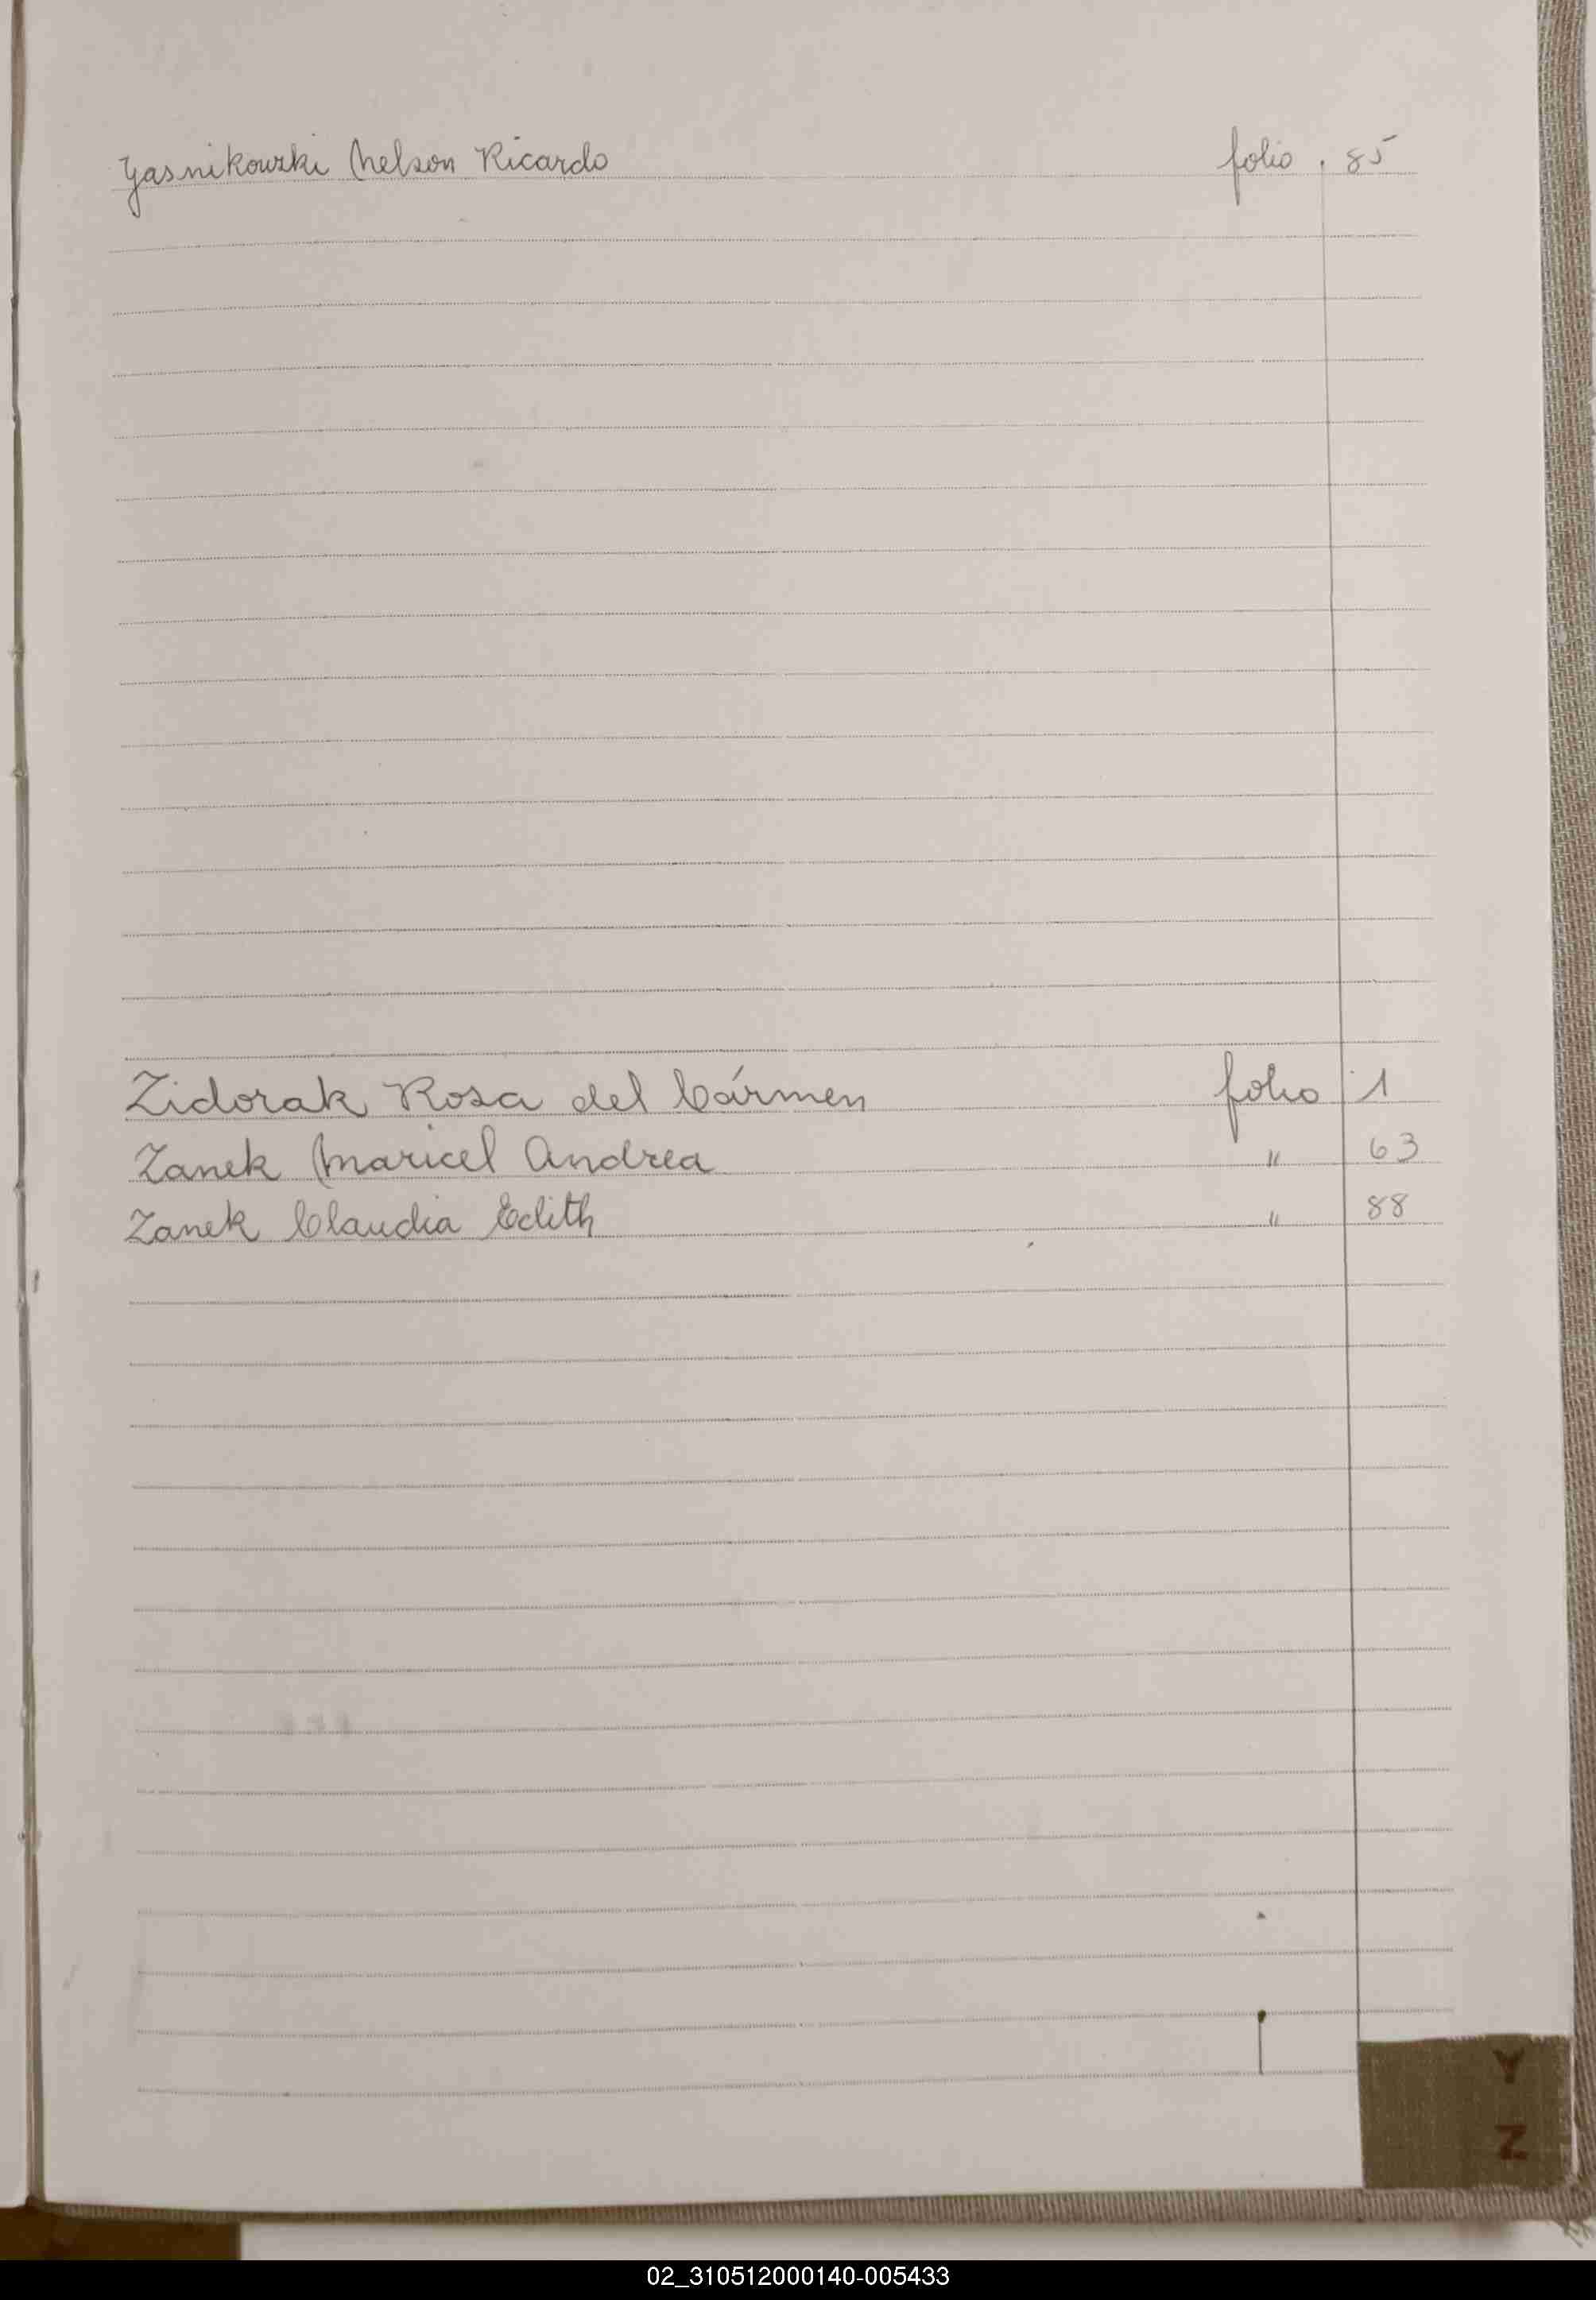 Yasnikowski Nelson Ricardo folio . 85
Zidorak Rosa del Cármen folio 1
Zanek Maricel Andrea " 63
Zanek Claudia Edith " 88
Y
Z
02_310512000140-005433